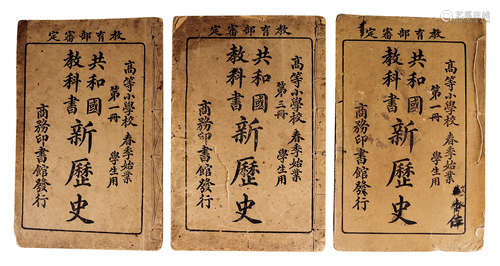 教育部審定
高等小學校 春季始業
第一冊 學生用
共和國
教科書
新歷史
商務印書館發行
教育部審定
高等小學校 春季始業
第三冊 學生用
共和國
教科書
新歷史
商務印書館發行
教育部審定
高等小學校 春季始業
第一冊 學生用
共和國
教科書
新歷史
商務印書館發行